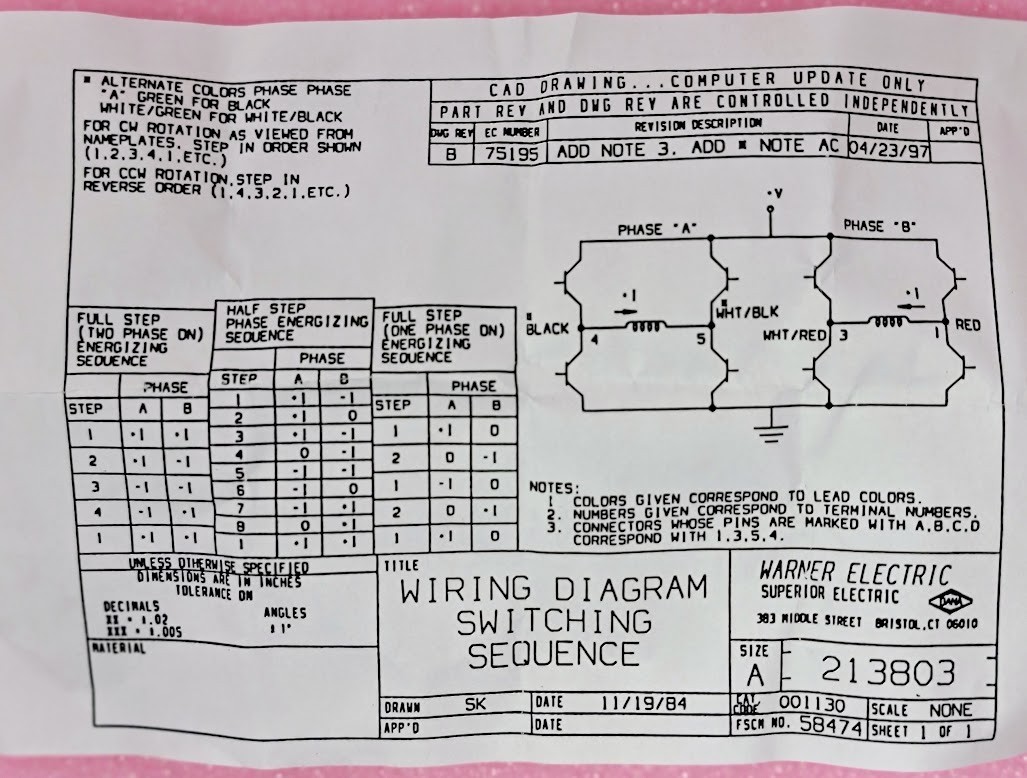 * ALTERNATE COLORS PHASE PHASE
"A" GREEN FOR BLACK
WHITE/GREEN FOR WHITE/BLACK
FOR CW ROTATION AS VIEWED FROM
NAMEPLATES, STEP IN ORDER SHOWN
(1,2,3,4,1,ETC.)
FOR CCW ROTATION,STEP IN
REVERSE ORDER (1,4,3,2,1,ETC.)
CAD DRAWING...COMPUTER UPDATE ONLY
PART REV AND DWG REV ARE CONTROLLED INDEPENDENTLY
DWG REV EC NUMBER REVISION DESCRIPTION DATE APP'D
B 75195 ADD NOTE 3. ADD * NOTE AC 04/23/97
+V
PHASE "A" PHASE "B"
+1 +1
* BLACK 4 5 * WHT/BLK WHT/RED 3 1 RED
FULL STEP
(TWO PHASE ON)
ENERGIZING
SEQUENCE
PHASE
STEP A B
1 +1 +1
2 +1 -1
3 -1 -1
4 -1 +1
1 +1 +1
HALF STEP
PHASE ENERGIZING
SEQUENCE
PHASE
STEP A B
1 +1 -1
2 +1 0
3 +1 -1
4 0 -1
5 -1 -1
6 -1 0
7 -1 +1
8 0 +1
1 +1 +1
FULL STEP
(ONE PHASE ON)
ENERGIZING
SEQUENCE
PHASE
STEP A B
1 +1 0
2 0 -1
1 -1 0
2 0 +1
1 +1 0
NOTES:
1. COLORS GIVEN CORRESPOND TO LEAD COLORS.
2. NUMBERS GIVEN CORRESPOND TO TERMINAL NUMBERS.
3. CONNECTORS WHOSE PINS ARE MARKED WITH A,B,C,D
CORRESPOND WITH 1,3,5,4.
UNLESS OTHERWISE SPECIFIED
DIMENSIONS ARE IN INCHES
TOLERANCE ON
DECIMALS ANGLES
XX ± 1.02 ± 1°
XXX ± 1.005
MATERIAL
TITLE
WIRING DIAGRAM
SWITCHING
SEQUENCE
DRAWN SK DATE 11/19/84
APP'D DATE
WARNER ELECTRIC
SUPERIOR ELECTRIC
DANA
383 MIDDLE STREET BRISTOL,CT 06010
SIZE
A 213803
CAT. CODE 001130 SCALE NONE
FSCM NO. 58474 SHEET 1 OF 1